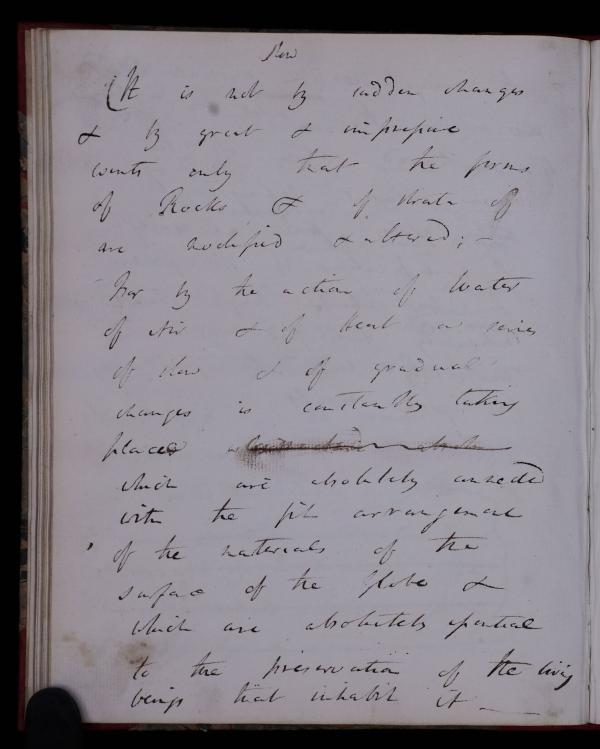 Slow
(It is not by sudden changes
& by great & impressive
events only that the forms
of Rocks & of strata of
are modified & altered; –
For by the action of Water
of Air & of Heat a series
of slow & of gradual
changes is constantly taking
place
which are absolutely
with the first arrangement
of the materials of the
surface of the Globe &
which are absolutely essential
to the preservation of the living
beings that inhabit it —